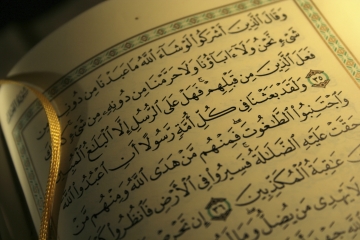 وَقَالَ الَّذِينَ أَشْرَكُوا لَوْ شَاءَ اللَّهُ مَا عَبَدْنَا مِن دُونِهِ مِن
شَيْءٍ نَّحْنُ وَلَا آبَاؤُنَا وَلَا حَرَّمْنَا مِن دُونِهِ مِن شَيْءٍ
فَعَلَ الَّذِينَ مِن قَبْلِهِمْ فَهَلْ عَلَى الرُّسُلِ إِلَّا الْبَلَاغُ الْمُبِينُ
٣٥ وَلَقَدْ بَعَثْنَا فِي كُلِّ أُمَّةٍ رَّسُولًا أَنِ اعْبُدُوا اللَّهَ
وَاجْتَنِبُوا الطَّاغُوتَ فَمِنْهُم مَّنْ هَدَى اللَّهُ وَمِنْهُم مَّنْ
حَقَّتْ عَلَيْهِ الضَّلَالَةُ فَسِيرُوا فِي الْأَرْضِ فَانظُرُوا
عَاقِبَةُ الْمُكَذِّبِينَ ٣٦ إِن تَحْرِصْ
لَا يَهْدِي مَن يُضِلُّ وَمَا لَهُم